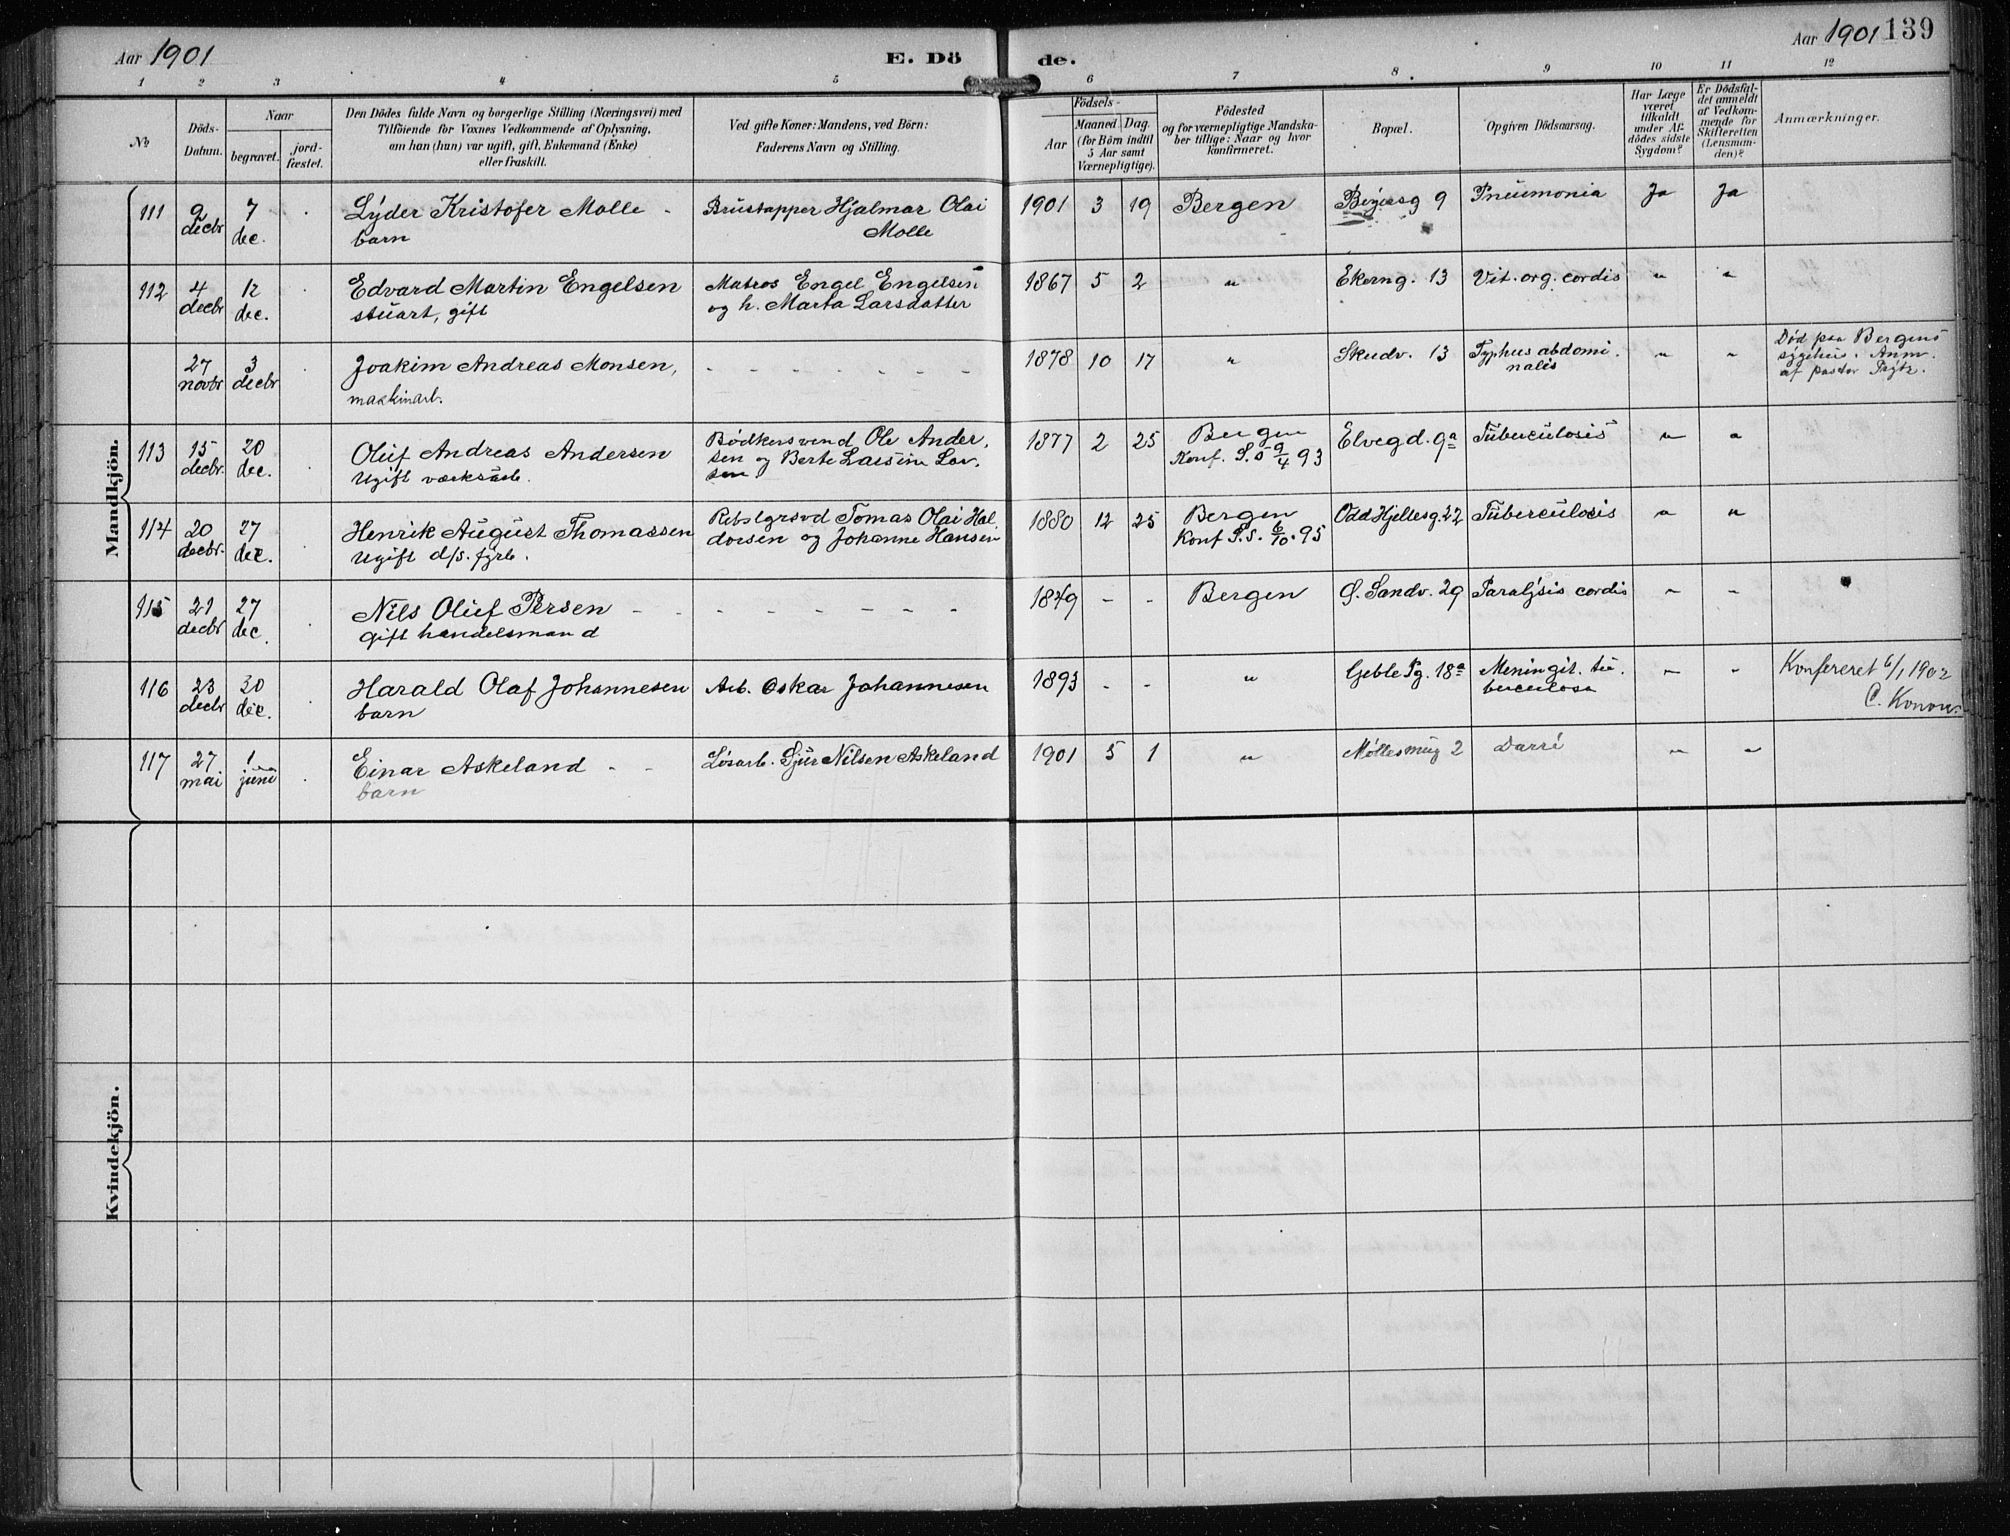 Aar 1901
E. Dö
de.
Aar 1901 139
1 2 3 4 5 6 7 8 9 10 11 12
No
Döds-
Datum.
Naar
begravet.
jord-
fæstet.
Den Dödes fulde Navn og borgerlige Stilling (Næringsvei) med
Tilföiende for Voxnes Vedkommende af Oplysning,
om han (hun) var ugift, gift, Enkemand (Enke)
eller fraskilt.
Ved gifte Koner: Mandens, ved Börn:
Faderens Navn og Stilling.
Födsels-
Aar
Maaned Dag.
(for Börn indtil
5 Aar samt
Værnepligtige).
Födested
og for værnepligtige Mandska-
ber tillige: Naar og hvor
konfirmeret.
Bopæl.
Opgiven Dödsaarsag.
Har Læge
været
tilkaldt
under Af-
dödes sidste
Sygdom?
Er Dödsfal-
det anmeldt
af Vedkom-
mende for
Skifteretten
(Lensman-
den)?
Anmærkninger.
Mandkjön.
111 2 decbr 7 dec. Lyder Kristofer Molle - Brustapper Hjalmar Olai 1901 3 19 Bergen 9 Pneumonia Ja Ja
barn Molle
112 4 decbr 12 dec. Edvard Martin Engelsen Matros Engel Engelsen 1867 5 2 " Ekerng. 13 Vit. org. cordis " "
stuart, gift og h. Marta Larsdatter
27 novbr 3 decbr Joakim Andreas Monsen, - - - - - - 1878 10 17 " Skudv. 13 Typhus abdomi- " " Død paa Bergens
maskinarb. nalis sygehus. Anm.
af pastor
113 15 decbr. 20 dec. Oluf Andreas Andersen Bødkersvend Ole Ander- 1877 2 25 Bergen Elvegd. 9a Tuberculosis " "
Ugift sen og Berte Konf. 9/4 93
114 20 decbr. 27 dec. Henrik August Thomassen Tomas Olai Hal- 1880 12 25 Bergen Odd Hjellesg. 22 Tuberculosis " "
Ugift d/s. fyrb. dorsen og Johanne Hansen Konf 6/10. 95
115 21 decbr 27 dec. Nils Oluf Persen - - - - - - - - 1849 - - Bergen Ø. Sandv. 29 Paralysis cordis " "
gift handelsmand
116 23 decbr 30 dec. Harald Olaf Johannesen Arb. Oskar Johannesen 1893 - - " Geble Pg. 18a Meningit. tu- " " Konfereret 6/1 1902
barn berculosa C. Konow
117 27 mai 1 juni Einar Askeland - - Løsarb. Sjur Nilsen Askeland 1901 5 1 " Møllesmug 2 Darré " "
barn
Kvindekjön.